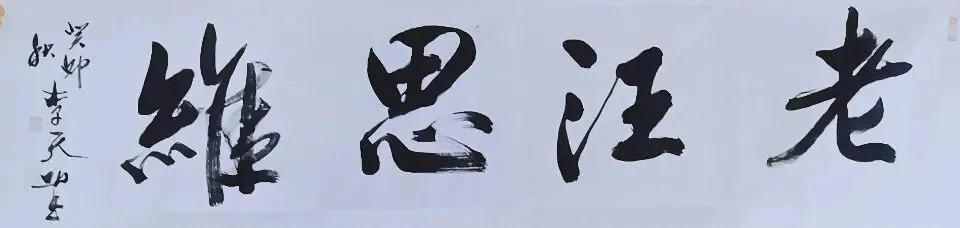 老汪思維
癸卯
秋 李天